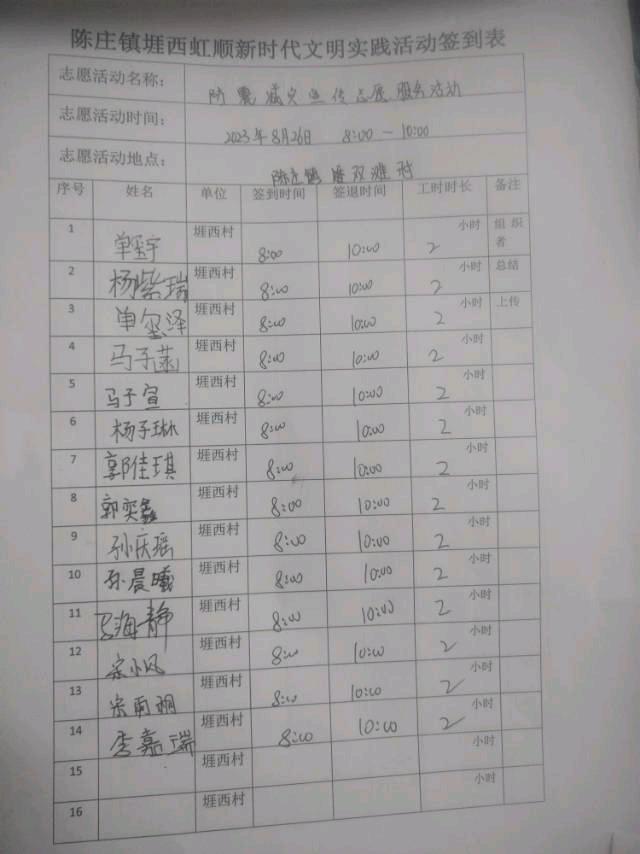 陈庄镇堐西虹顺新时代文明实践活动签到表
志愿活动名称： 防震减灾宣传志愿服务活动
志愿活动时间： 2023年8月26日 8:00-10:00
志愿活动地点： 陈庄镇 双滩村
序号 姓名 单位 签到时间 签退时间 工时时长 备注
1 单玺宇 堐西村 8:00 10:00 2小时 组织者
2 杨紫瑞 堐西村 8:00 10:00 2小时 总结
3 单玺泽 堐西村 8:00 10:00 2小时 上传
4 马子菡 堐西村 8:00 10:00 2小时
5 马子宣 堐西村 8:00 10:00 2小时
6 杨子琳 堐西村 8:00 10:00 2小时
7 郭佳琪 堐西村 8:00 10:00 2小时
8 郭奕鑫 堐西村 8:00 10:00 2小时
9 孙庆瑶 堐西村 8:00 10:00 2小时
10 孙晨曦 堐西村 8:00 10:00 2小时
11 海静 堐西村 8:00 10:00 2小时
12 宗小凤 堐西村 8:00 10:00 2小时
13 宗雨明 堐西村 8:00 10:00 2小时
14 李嘉瑞 堐西村 8:00 10:00 2小时
15 堐西村 小时
16 堐西村 小时